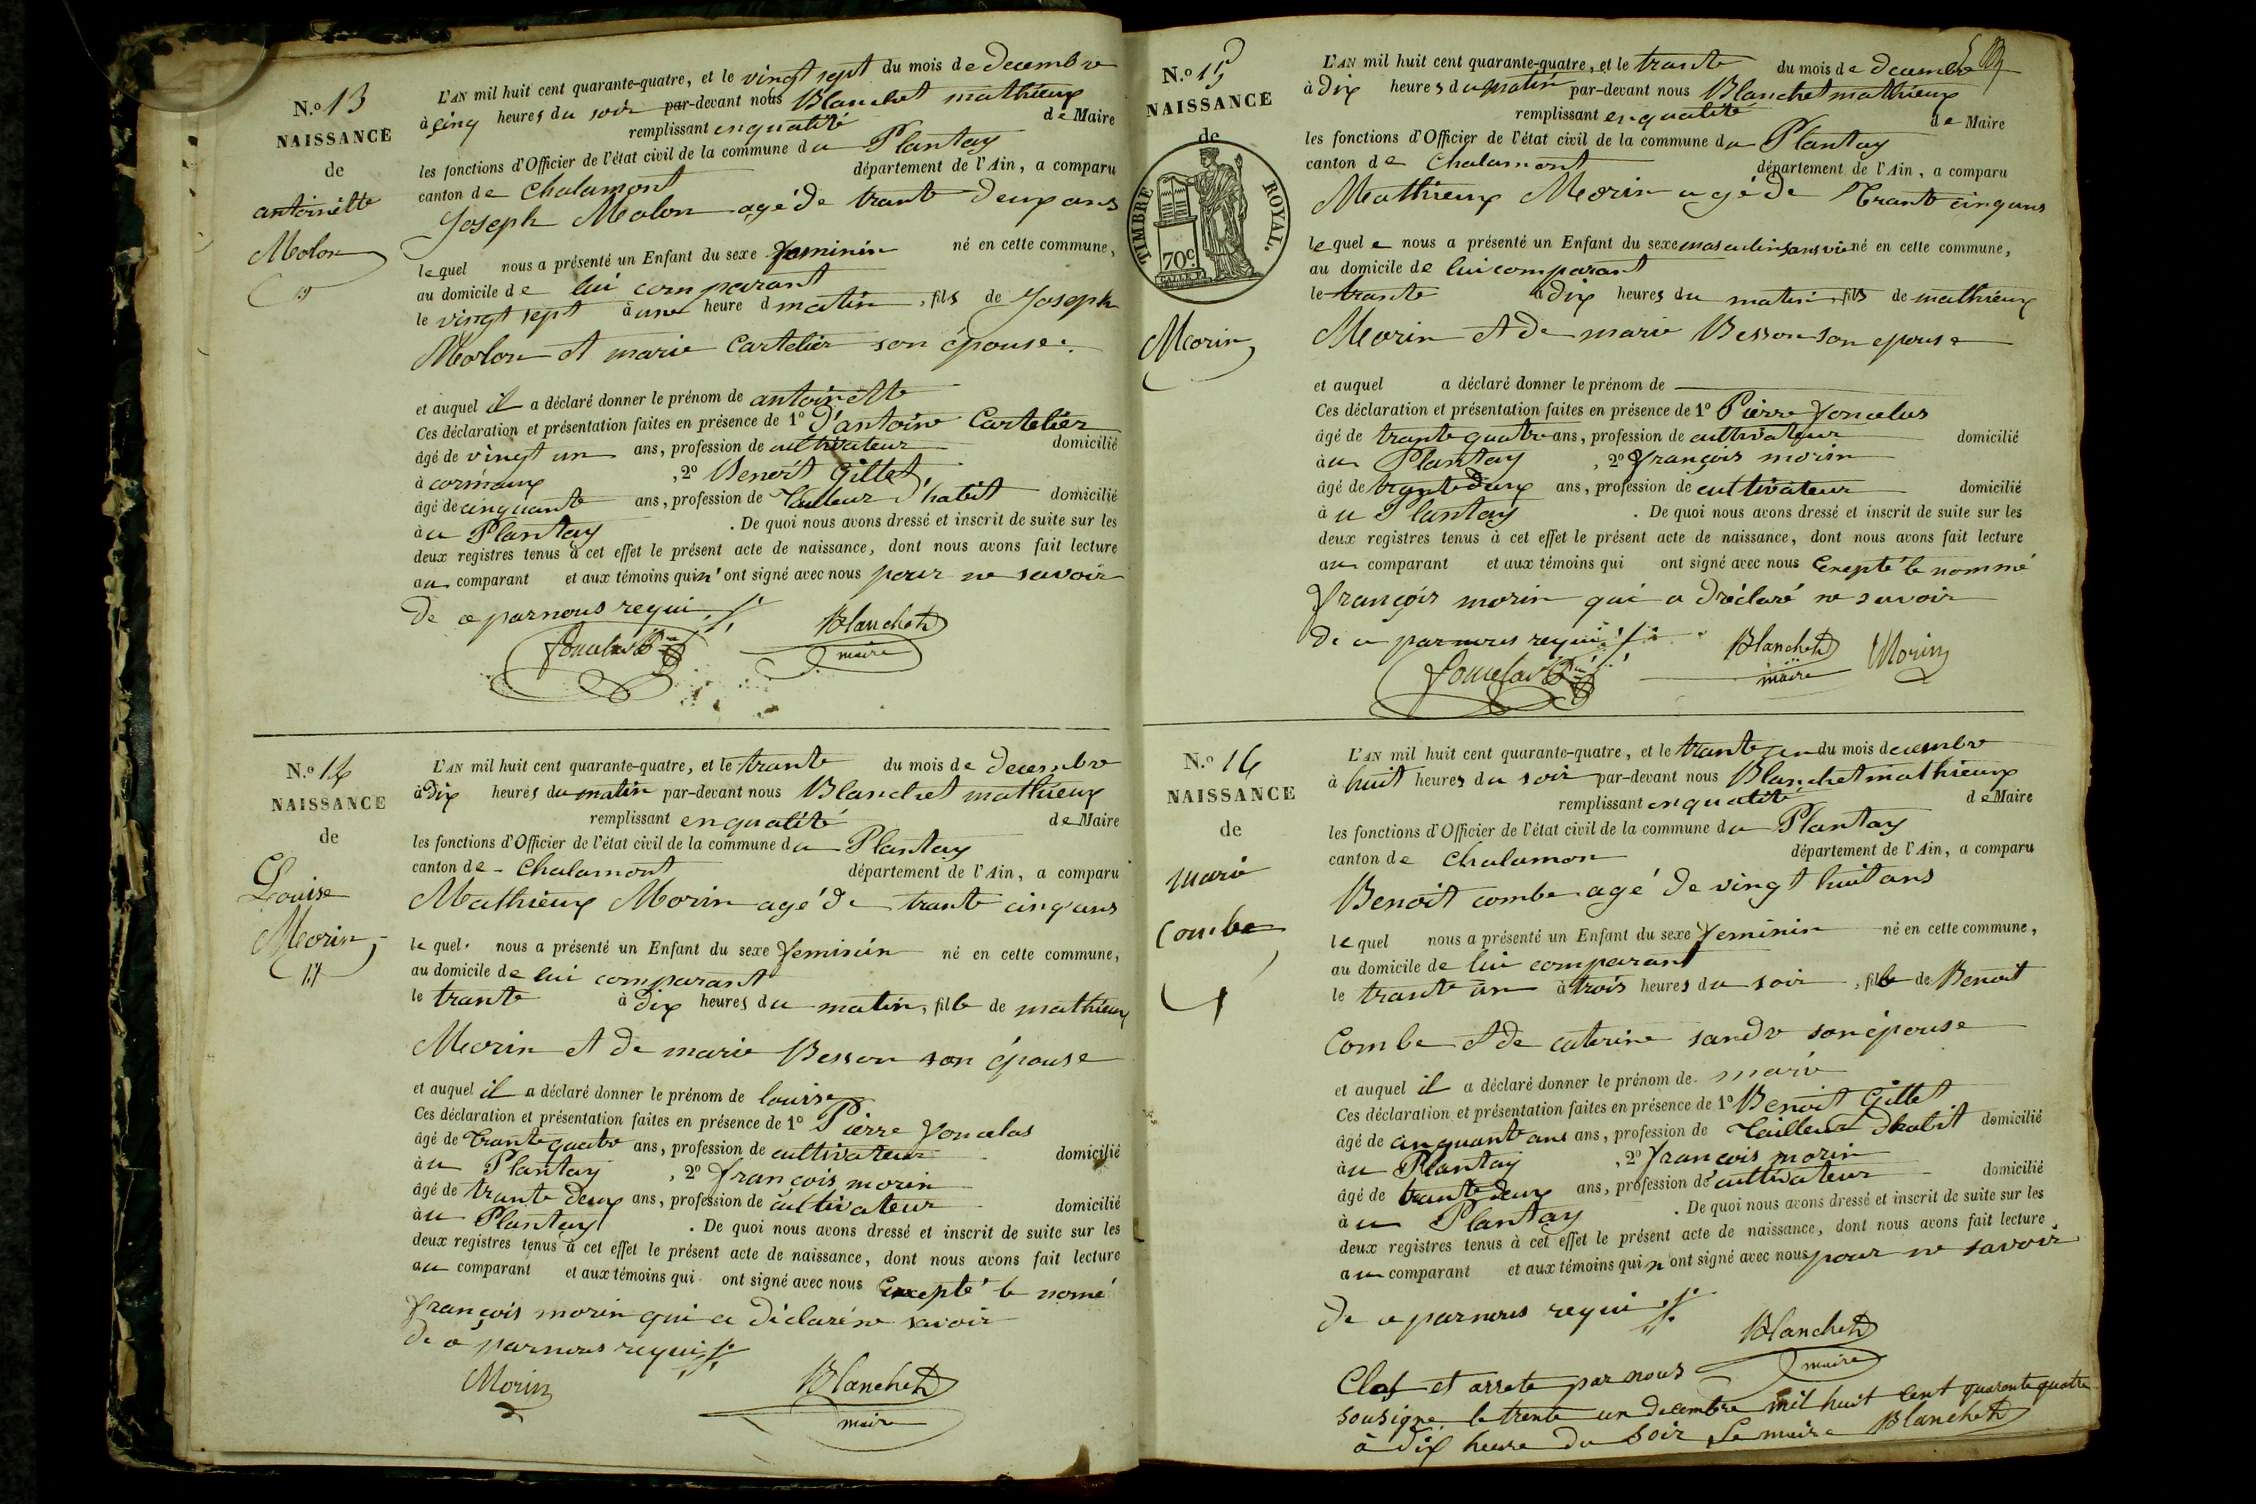 N.º 13
NAISSANCE
de
antoinette
Molon
L'AN mil huit cent quarante-quatre, et le vingt sept du mois de decembre
à çinq heures du soir par-devant nous Blanchet mathieux
remplissant enqualité de Maire
les fonctions d'Officier de l'état civil de la commune du Plantay
canton de Chalamont département de l'Ain, a comparu
Joseph Molon agé de trante deux ans
lequel nous a présenté un Enfant du sexe feminin né en cette commune,
au domicile de lui comparant
le vingt sept à une heure d matin, fils de Joseph
Molon et marie Cartelier son épouse.
et auquel il a déclaré donner le prénom de antoinette
Ces déclaration et présentation faites en présence de 1º d'antoine Cartelier
âgé de vingt un ans, profession de cultivateur domicilié
à cormaux, 2º Benoit Gillet
âgé de cinquante ans, profession de Tailleur d'habit domicilié
à u Plantay. De quoi nous avons dressé et inscrit de suite sur les
deux registres tenus à cet effet le présent acte de naissance, dont nous avons fait lecture
au comparant et aux témoins qui n'ont signé avec nous pour ne savoir
de ce parnous requi
Blanchet
maire
N.º 14
NAISSANCE
de
Louise
Morin
L'AN mil huit cent quarante-quatre, et le trante du mois de decembre
à Dix heures du matin par-devant nous Blanchet mathieux
remplissant enqualité de Maire
les fonctions d'Officier de l'état civil de la commune du Plantay
canton de - Chalamont département de l'Ain, a comparu
Mathieux Morin agé de trante cinq ans
lequel. nous a présenté un Enfant du sexe feminin né en cette commune,
au domicile de lui comparant
le trante à dix heures du matin, fille de mathieux
Morin et de marie Besson son épouse
et auquel il a déclaré donner le prénom de louise
Ces déclaration et présentation faites en présence de 1º Pierre foncelas
âgé de trante quatre ans, profession de cultivateur domicilié
à u Plantay, 2º françois morin
âgé de trante deux ans, profession de cultivateur domicilié
à u Plantay. De quoi nous avons dressé et inscrit de suite sur les
deux registres tenus à cet effet le présent acte de naissance, dont nous avons fait lecture
au comparant et aux témoins qui ont signé avec nous Excepté le nomé
françois morin qui a déclaré ne savoir
de ce parnous requi
Morin
Blanchet
maire
N.º 15
NAISSANCE
de
TIMBRE ROYAL.
70 c.
Morin
L'AN mil huit cent quarante-quatre, et le trante du mois de decembre
à Dix heures du matin par-devant nous Blanchet mathieux
remplissant enqualité de Maire
les fonctions d'Officier de l'état civil de la commune du Plantay
canton de Chalamont département de l'Ain, a comparu
Mathieux Morin agé de Trante cinq ans
lequel nous a présenté un Enfant du sexe masculin sans vie né en cette commune,
au domicile de lui comparant
le trante à dix heures du matin, fils de mathieux
Morin et de marie Besson son epouse
et auquel a déclaré donner le prénom de
Ces déclaration et présentation faites en présence de 1º Pierre foncelas
âgé de trante quatre ans, profession de cultivateur domicilié
à u Plantay, 2º françois morin
âgé de trante deux ans, profession de cultivateur domicilié
à u Plantay. De quoi nous avons dressé et inscrit de suite sur les
deux registres tenus à cet effet le présent acte de naissance, dont nous avons fait lecture
au comparant et aux témoins qui ont signé avec nous Excepté le nommé
françois morin qui a déclaré ne savoir
de ce parnous requi
Blanchet
maire
Morin
N.º 16
NAISSANCE
de
marie
Combe
L'AN mil huit cent quarante-quatre, et le trante un du mois decembre
à huit heures du soir par-devant nous Blanchet mathieux
remplissant enqualité de Maire
les fonctions d'Officier de l'état civil de la commune du Plantay
canton de Chalamon département de l'Ain, a comparu
Benoit combe agé de vingt huit ans
lequel nous a présenté un Enfant du sexe feminin né en cette commune,
au domicile de lui comparant
le trante un à trois heures du soir, fille de Benoit
Combe et de caterine sandre son épouse
et auquel il a déclaré donner le prénom de marie
Ces déclaration et présentation faites en présence de 1º Benoit Gillet
âgé de cinquante ans ans, profession de Tailleur d'habit domicilié
à u Plantay, 2º francois morin
âgé de trante deux ans, profession de cultivateur domicilié
à u Plantay. De quoi nous avons dressé et inscrit de suite sur les
deux registres tenus à cet effet le présent acte de naissance, dont nous avons fait lecture
au comparant et aux témoins qui n'ont signé avec nous pour ne savoir
de ce parnous requi
Blanchet
maire
Clos et arrete par nous
sousigne le trente un decembre mil huit cent quarante quatre
à dix heure du soir Le maire Blanchet